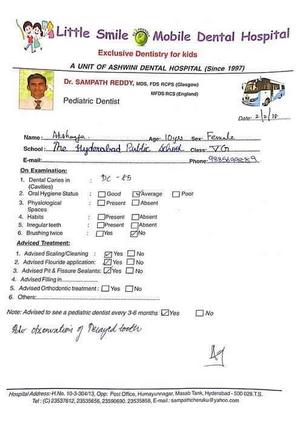 Little Smile Mobile Dental Hospital
Exclusive Dentistry for kids
A UNIT OF ASHWINI DENTAL HOSPITAL (Since 1997)
Dr. SAMPATH REDDY, MDS, FDS RCPS (Glasgow)
MFDS RCS (England)
Pediatric Dentist
Date: 2/2/18
Name: Age: 10yrs Sex: Female
School: The Hyderabad Public School Class: VG
E-mail: Phone:
On Examination:
1. Dental Caries in (Cavities) DC - 85
2. Oral Hygiene Status : Good Average Poor
3. Physiological Spaces : Present Absent
4. Habits : Present Absent
5. Irregular teeth : Present Absent
6. Brushing twice : Yes No
Adviced Treatment:
1. Advised Scaling/Cleaning : Yes No
2. Advised Flouride application: Yes No
3. Advised Pit & Fissure Sealants: Yes No
4. Advised Filling in
5. Advised Orthodontic treatment : Yes No
6. Others:
Note: Advised to see a pediatric dentist every 3-6 months Yes No
observation of Decayed tooth
Hospital Address: H.No. 10-3-304/13, Opp: Post Office, Humayunnagar, Masab Tank, Hyderabad - 500 028. T.S.
Tel : (C) 23537612, 23535656, 23590690. 23535858, E-mail : sampathcheruku@yahoo.com